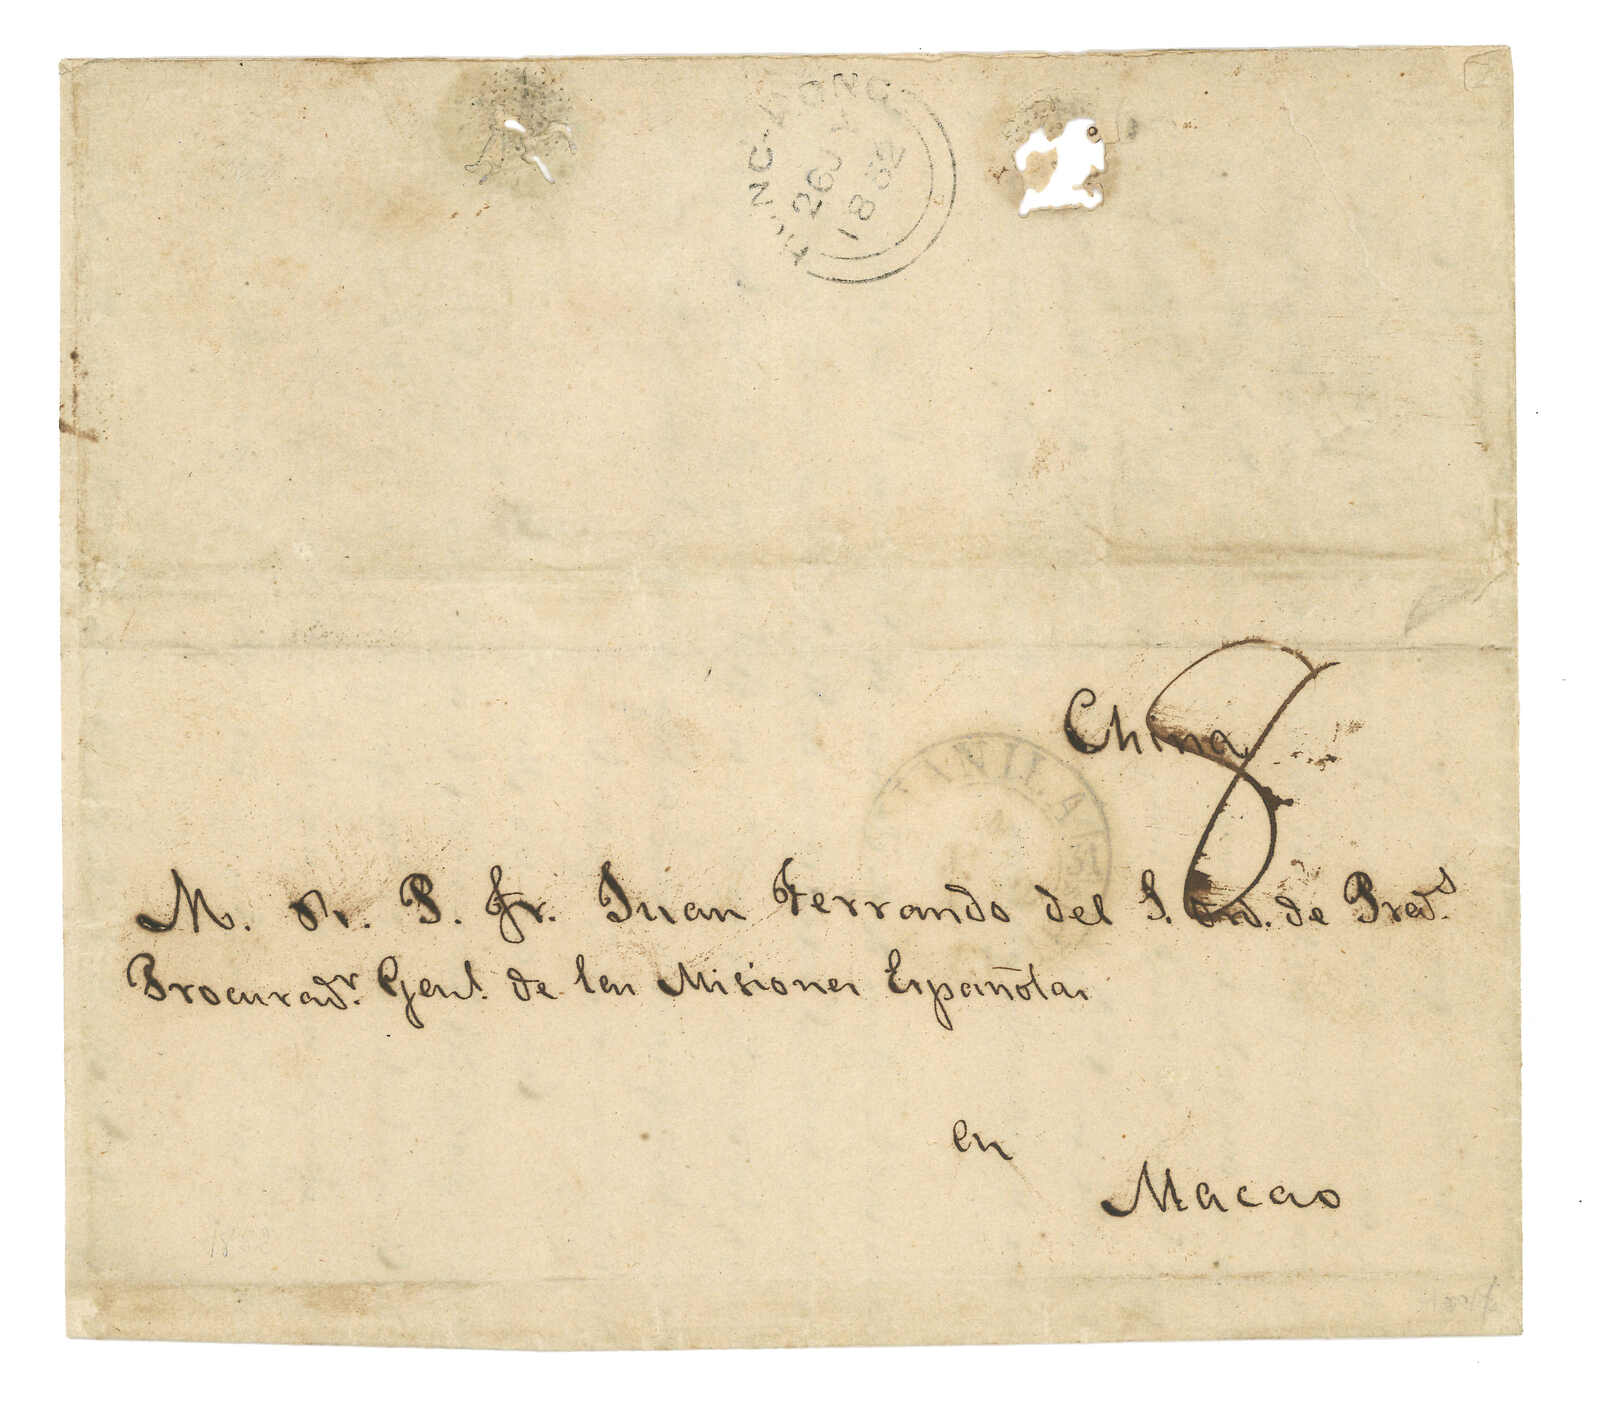 HONG-KONG
26 JY
1852
China
8
MANILA
M. R. P. Fr. Juan Ferrando del S. Ord. de Pred.s
Procurad.r Gen.l de las Misiones Españolas
en
Macao